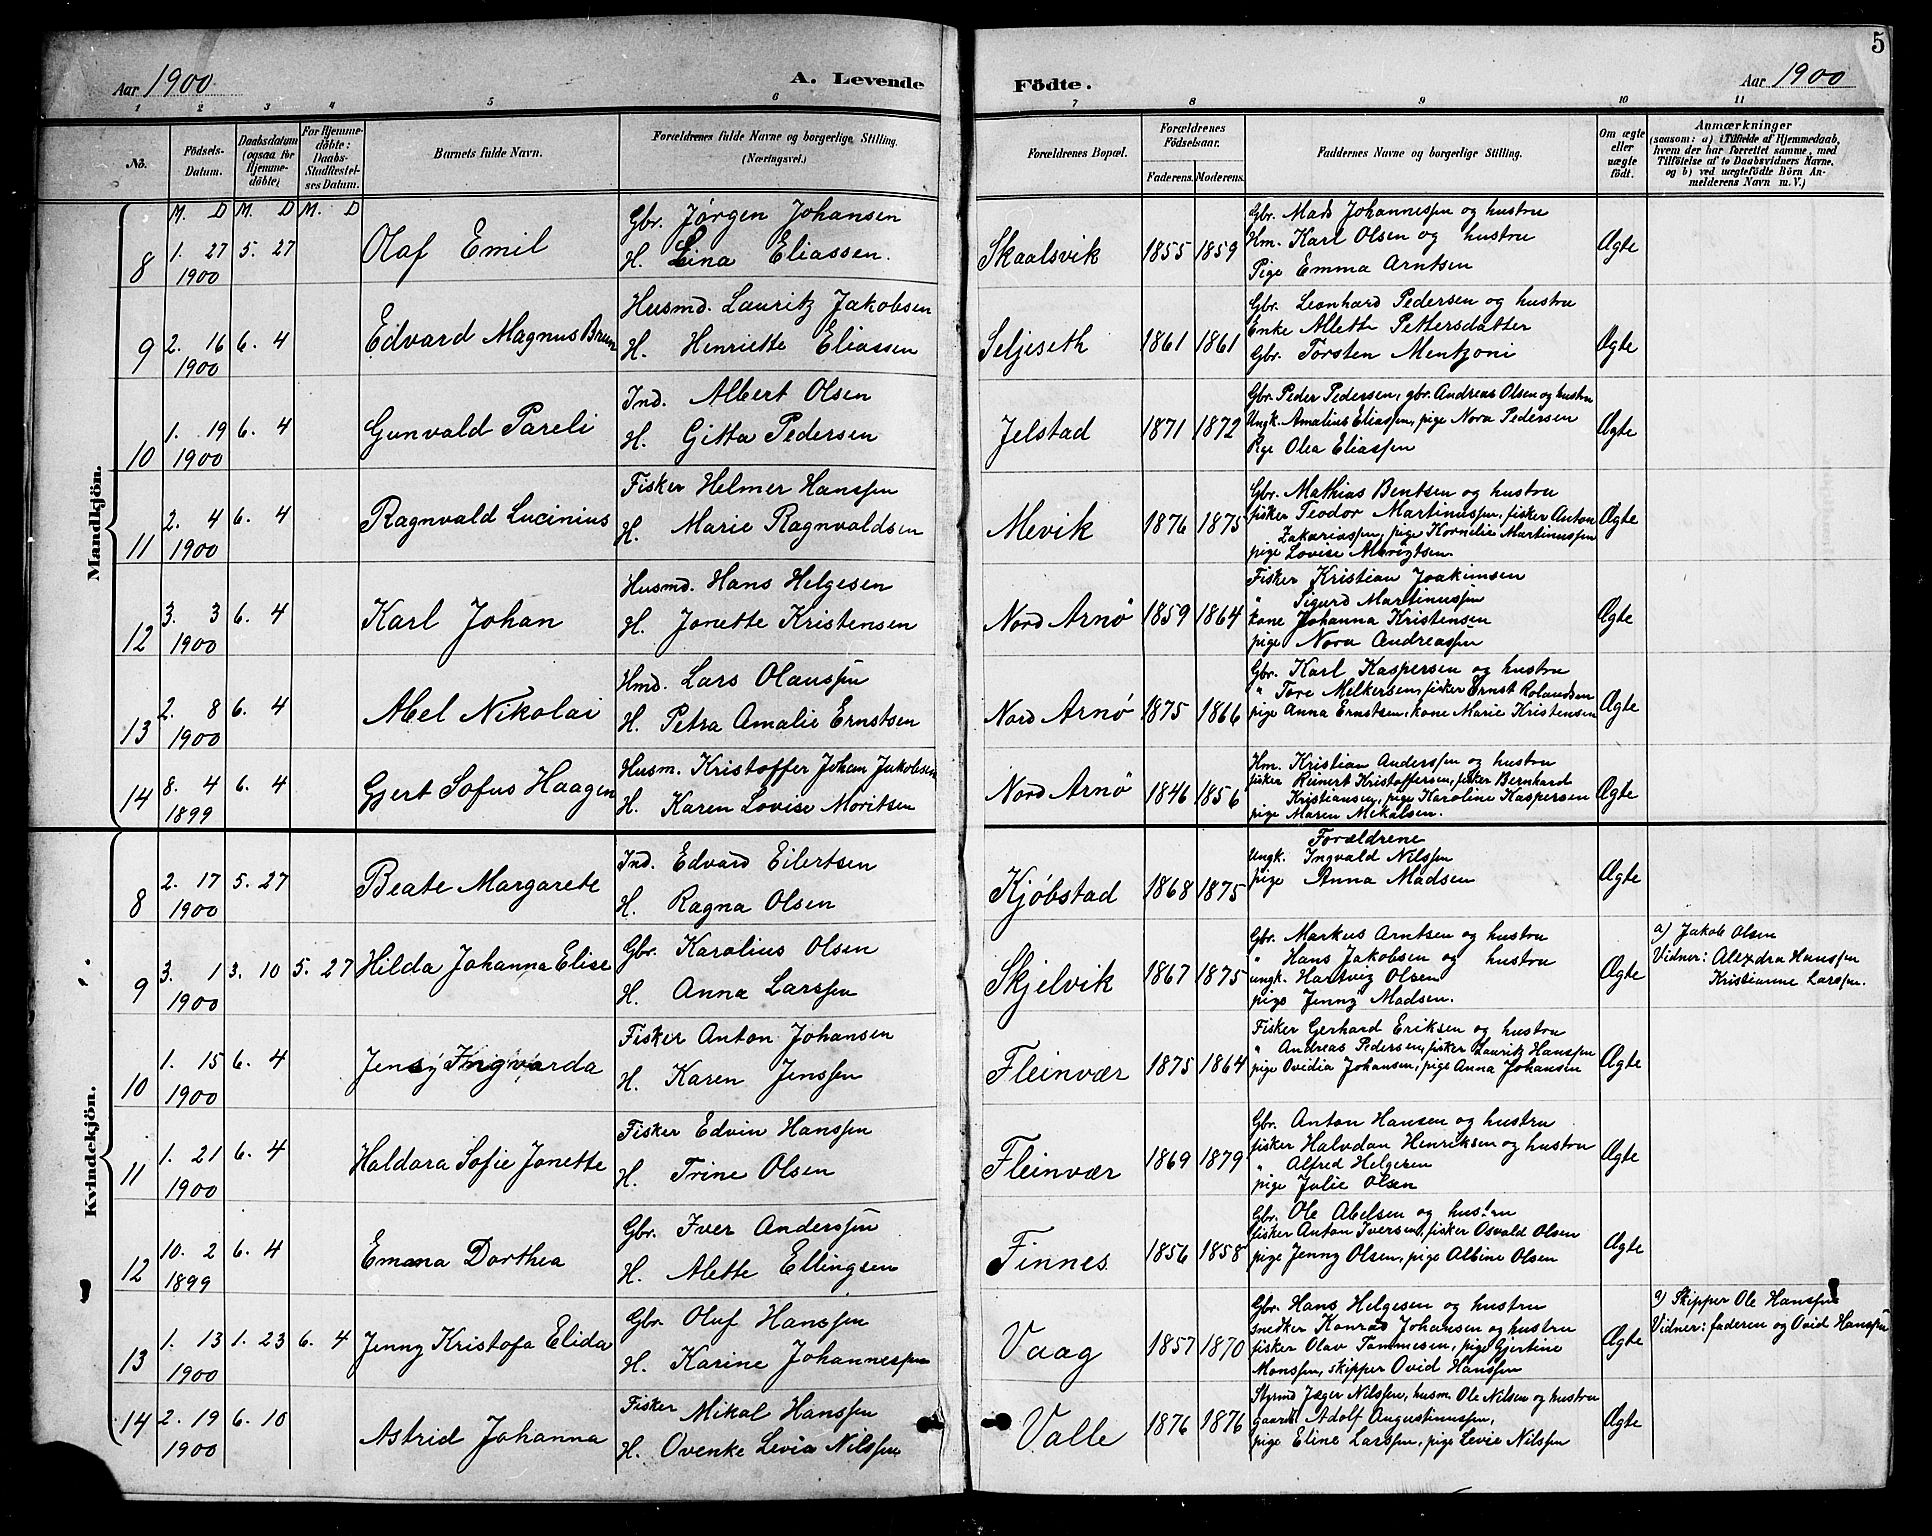 5
Aar 1900
A. Levende
Födte.
Aar 1900
1 2 3 4 5 6 7 8 9 10 11
No.
Födsels-
Datum.
Daabsdatum
(ogsaa for
Hjemme-
döbte)
For Hjemme-
döbte:
Daabs-
Stadfæstel-
ses Datum.
Barnets fulde Navn.
Forældrenes fulde Navne og borgerlige Stilling.
(Næringsvei.)
Forældrenes Bopæl.
Forældrenes
Födselsaar.
Faderens. Moderens.
Faddernes Navne og borgerlige Stilling.
Om ægte
eller
uægte
födt.
Anmærkninger
(saasom: a) i Tilfælde af Hjemmedaab,
hvem der har forrettet samme, med
Tilföielse af to Daabsvidners Navne,
og b) ved uægtefödte Börn An-
melderens Navn m. V.)
M. D M. D M. D
Mandkjön.
8 1. 27 1900 5. 27 Olaf Emil
Gbr. Jørgen Johansen
H. Lina Eliassen.
Skaalsvik 1855 1859
Gbr. Mads Johannessen og hustru
Hm. Karl Olsen og hustru
Pige Emma Arntsen
Ægte
9 2. 16 1900 6. 4 Edvard Magnus Brun
Husmd. Lauritz Jakobsen
H. Henriette Eliassen
Seljeseth 1861 1861
Gbr. Leonhard Pedersen og hustru
Enke Alette Pettersdatter
Gbr. Torsten Mentzoni
Ægte
10 1. 19 1900 6. 4 Gunvald Pareli
Ind. Albert Olsen
H. Gitta Pedersen
Jelstad 1871 1872
Gbr. Peder Pedersen, gbr. Andreas Olsen og hustru
Ungk. Amalius Eliassen, pige Nora Pedersen
Pige Olea Eliassen
Ægte
11 2. 4 1900 6. 4 Ragnvald Lucinius
Fisker Helmer Hanssen
H. Marie Ragnvaldsen
Mevik 1876 1875
Gbr. Mathias Bentsen og hustru
fisker Teodor Martinussen, fisker Anton
Zakariassen, pige Kornelie Martinussen
pige Lovise
Ægte
12 3. 3 1900 6. 4 Karl Johan
Husmd. Hans Helgesen
H. Jonette Kristensen
Nord Arnø 1859 1864
Fisker Kristian Joakimsen
" Sigurd Martinussen
kone Johanna Kristensen
pige Nora Andreassen
Ægte
13 2. 8 1900 6. 4 Abel Nikolai
Hmd. Lars Olaussen
H. Petra Amalie Ernstsen
Nord Arnø 1875 1866
Gbr. Karl Kaspersen og hustru
" Tore Melkersen, fisker Ernst Rolandsen
pige Anna Ernstsen, kone Marie Kristensen
Ægte
14 8. 4 1899 6. 4 Gjert Sofus Haagen
Husm. Kristoffer Johan Jakobsen
H. Karen Lovise Moritsen
Nord Arnø 1846 1856
Hm. Kristian Anderssen og hustru
fisker Reinert Kristoffersen, fisker Bernhard
Kristiansen, pige Karoline Kaspersen
pige Maren Mikalsen.
Ægte
Kvindekjön.
8 2. 17 1900 5. 27 Beate Margarete
Ind. Edvard Eilertsen
H. Ragna Olsen
Kjøbstad 1868 1875
Forældrene
Ungk. Ingvald Nilssen
pige Anna Madsen
Ægte
9 3. 1 1900 3. 10 5. 27 Hilda Johanna Elise
Gbr. Karolius Olsen
H. Anna Larssen
Skjelvik 1867 1875
Gbr. Markus Arntsen og hustru
" Hans Jakobsen og hustru
ungk. Hartvig Olsen
pige Jenny Madsen.
Ægte
a) Jakob Olsen
Vidner: Alexdra Hanssen
Kristianne Larssen.
10 1. 15 1900 6. 4 Jensy Ingvarda
Fisker Anton Johansen
H. Karen Jenssen
Fleinvær 1875 1864
Fisker Gerhard Eriksen og hustru
" Andreas Pedersen, fisker Lauritz Hanssen
pige Ovidia Johansen, pige Anna Johansen
Ægte
11 1. 21 1900 6. 4 Haldora Sofie Jonette
Fisker Edvin Hanssen
H. Trine Olsen
Fleinvær 1869 1879
Gbr. Anton Hansen og hustru
fisker Halvdan Henriksen og hustru
" Alfred Helgesen
pige Julie Olsen
Ægte
12 10. 2 1899 6. 4 Emma Dorthea
Gbr. Iver Anderssen
H. Alette Ellingsen
Finnes 1856 1858
Gbr. Ole Abelsen og hustru
fisker Anton Iversen, fisker Osvald Olsen
pige Jenny Olsen, pige Albine Olsen
Ægte
13 1. 13 1900 1. 23 6. 4 Jenny Kristofa Elida
Gbr. Oluf Hanssen
H. Karine Johannessen
Vaag 1857 1870
Gbr. Hans Helgesen og hustru
Snedker Konrad Johansen og hustru
fisker Olav Tommesen, pige Gjertine
Monssen, skipper Ovid Hanssen
Ægte
a) Skipper Ole Hanssen
Vidner: faderen og Ovid Hanssen
14 2. 19 1900 6. 10 Astrid Johanna
Fisker Mikal Hanssen
H. Ovenke Levia Nilssen
Valle 1876 1876
Styrmd Jæger Nilssen, husm. Ole Nilsen og hustru
gaardb. Adolf Augustinussen,
pige Eline Larssen, pige Levie Nilssen
Ægte